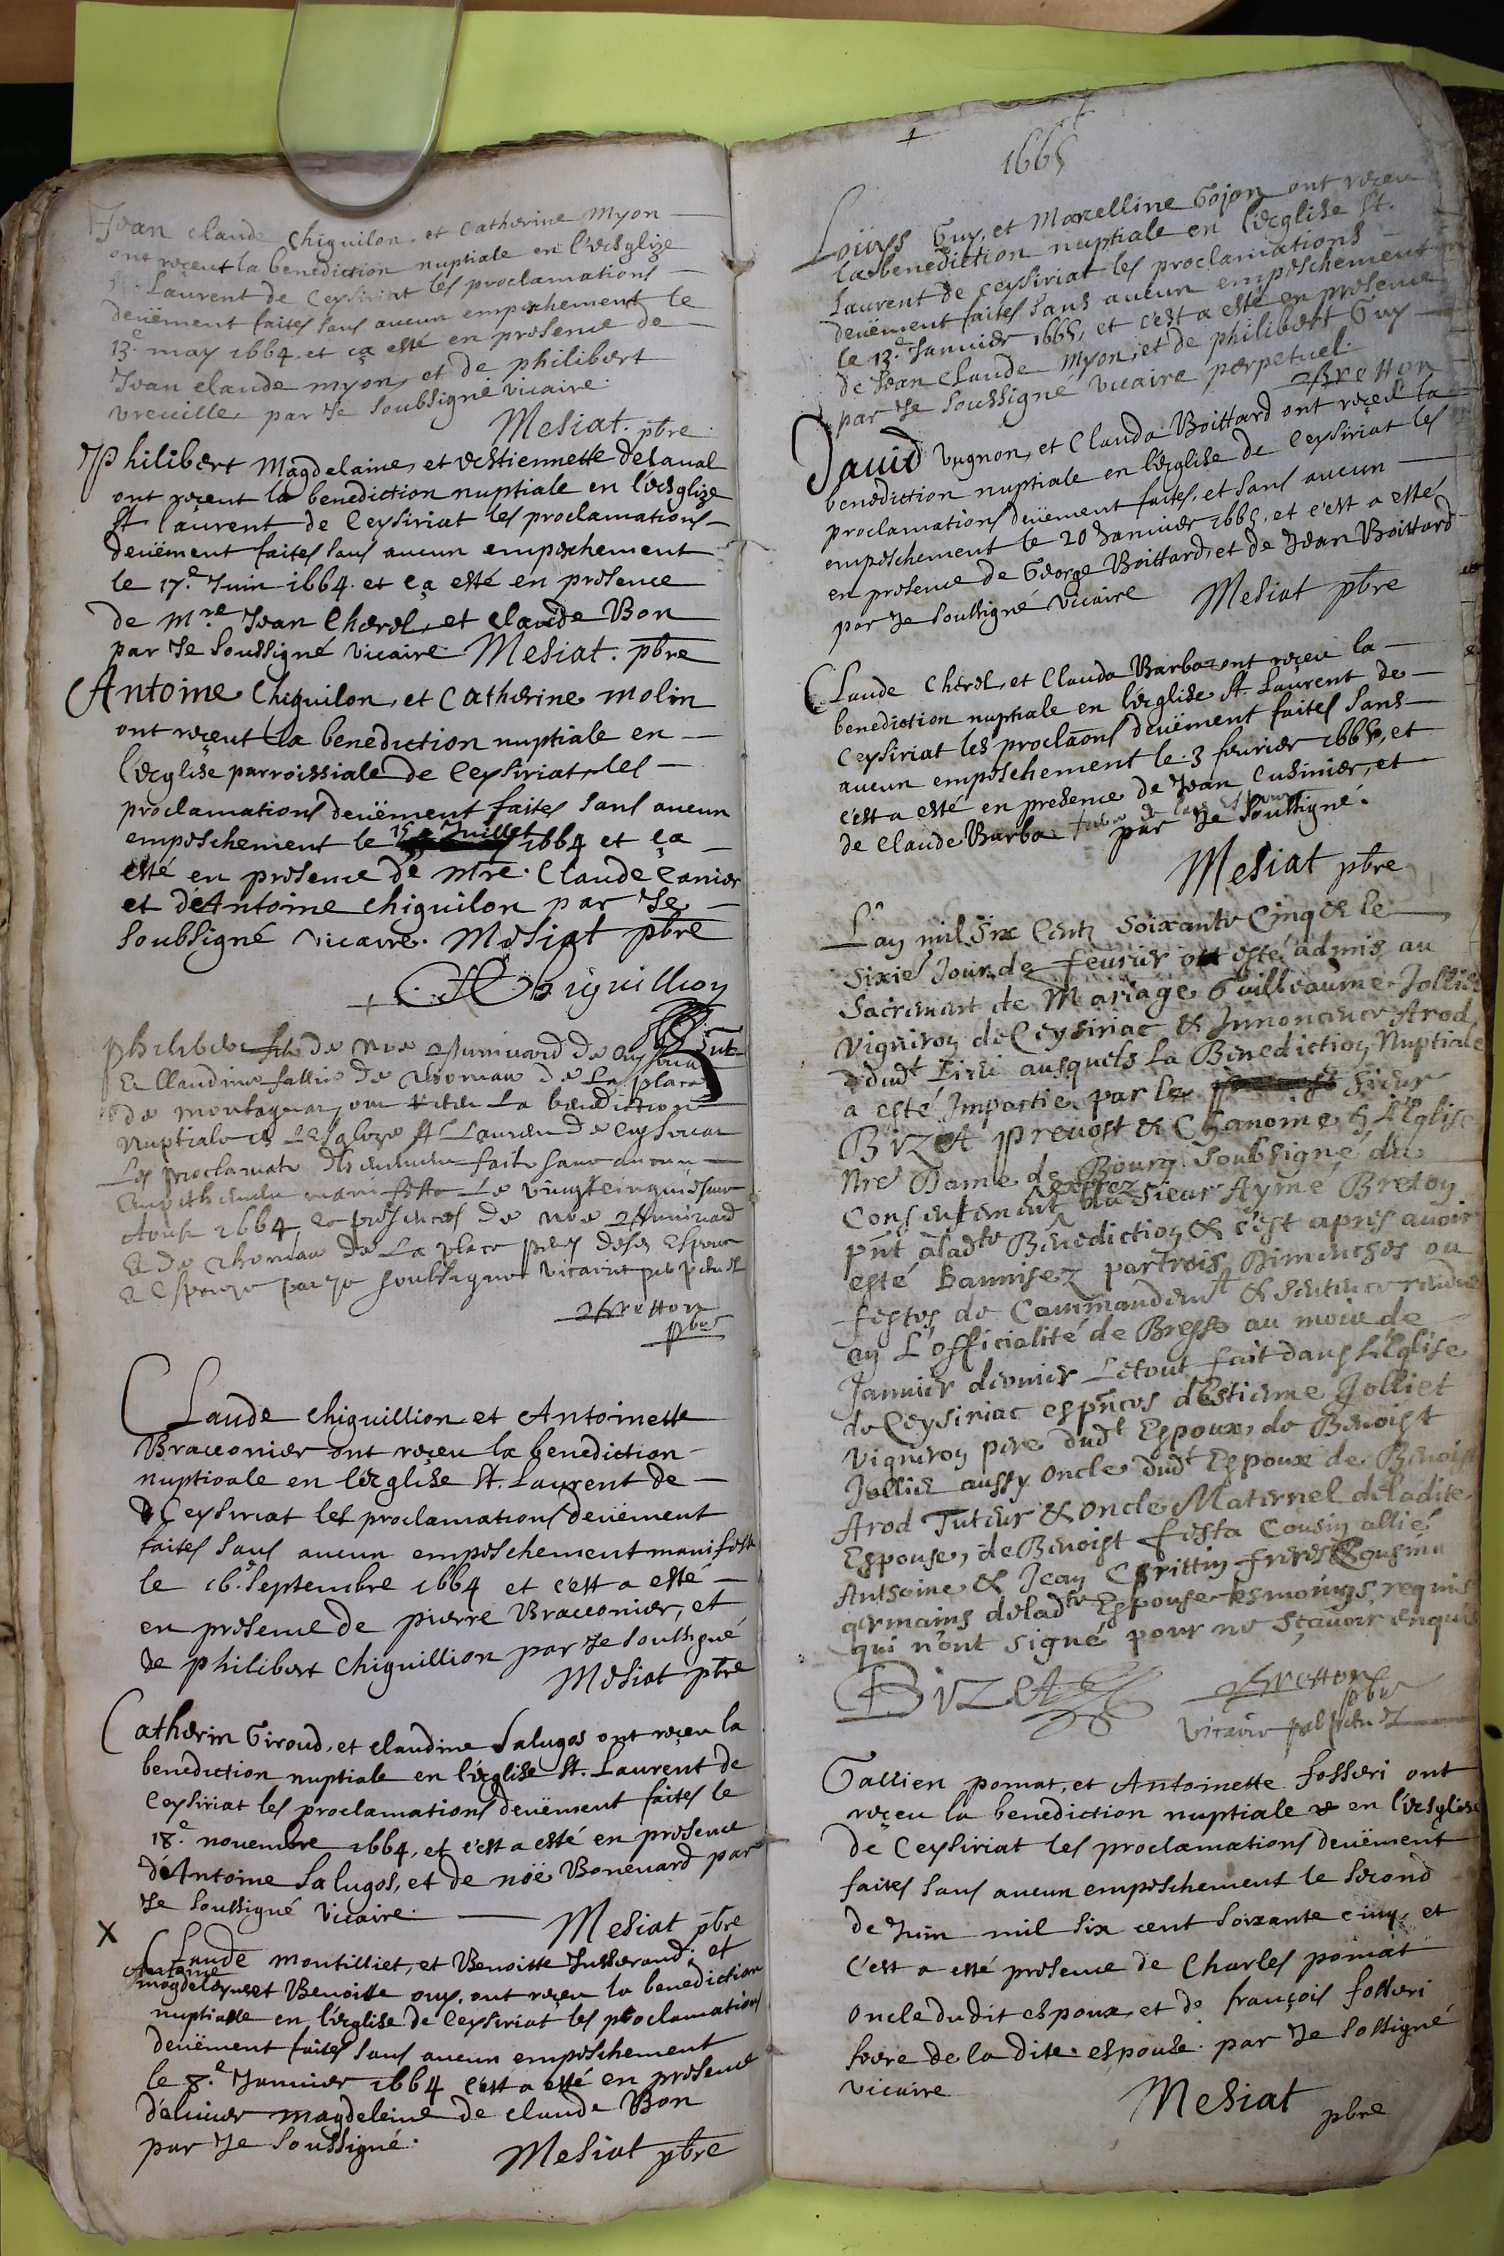 Jean claude Chiguilon, et catherine myon
ont reçeut la benediction nuptiale en l'eesglize
St Laurent de Ceysiriat les proclamations
deuëment faites sans aucun empeschement le
13e may 1664 et ça esté en presence de
Jean claude myon, et de philibert
vreuille par Je soubsigné vicaire.
Mesiat. pbre
Philibert Magdelaine, et estiennette delaual
ont reçeut la benediction nuptiale en l'eesglize
St laurent de Ceysiriat les proclamations
deuëment faites sans aucun empeschement
le 17e Juin 1664 et ça esté en presence
de Mre Jean Cherel, et claude Bon
par Je soussigné vicaire Mesiat. pbre
Antoine Chiguilon, et Catherine molin
ont reçeut la benediction nuptiale en
l'ecglise parroissiale de Ceysiriat, les
proclamations deuëment faites sans aucun
empeschement le 15 Juillet 1664 et ça
esté en presence de mre. Claude
et d'Antoine chiguilon par Je
soubsigné vicaire. Mesiat pbre
Chiguillion
de noe de
Et Claudine fallie de thomas de La place
de montagnat, ont receu La benediction
Nuptiale en L'esglize St Laurens de ceysiriat
Les proclamats deuement faits sans aucun
manifeste Le vingtcinquiesme
1664 de noe
Et de thomas de La place peres deses Espoux
et Espouze par je soubsigné vicaire perpetuel
Bretton
pbre
Claude chiguillion et Antoinette
Braconier ont reçeu la benediction
nuptioale en l'ecglise St. Laurent de
Ceysiriat les proclamations deuëment
faites sans aucun empeschement manifest
le 16e Septembre 1664 et c'est a esté
en presence de pierre Braconier, et
de philibert Chiguillion par Je soussigué
Mesiat pbre
Catherin Giroud, et claudine Salugos ont reçeu la
benediction nuptiale en l'ecglise St. Laurent de
Ceysiriat les proclamations deuëment faites le
18e novembre 1664, et c'est a esté en presence
d'Antoine Salugos, et de noë Boneuard par
Je soussigné vicaire.
Mesiat pbre
X
Claude montilliet, et Benoitte Jusserand, et
Antoine
magdeleyne et Benoitte ouy, ont reçeu la benediction
nuptialle en l'ecglise de Ceysiriat les proclamations
deuëment faites sans aucun empeschement
le 8e Januier 1664 c'est a esté en presence
magdeleine de claude Bon
par Je soussigné.
Mesiat pbre
1665
Loüys Guy, et Marcelline Gojon ont reçeu
la benediction nuptiale en l'ecglise St.
Laurent de ceysiriat les proclamations
deuëment faites sans aucun empeschement
le 13e Januier 1665, et c'est a esté en presence
de Jean Claude Myon, et de philibert Guy
par Je soussigné vicaire perpetuel.
Bretton
Dauid vugnon, et Clauda Boittard ont reçeu la
benediction nuptiale en l'ecglise de Ceysiriat les
proclamations deuëment faites, et sans aucun
empeschement le 20 Januier 1665, et c'est a esté
en presence de George Boittard, et de Jean Boittard
par Je soussigné vicaire Mesiat pbre
Claude Cherel, et Clauda Barba ont reçeu la
benediction nuptiale en l'ecglise St Laurent de
Ceysiriat les proclaōns deuëment faites sans
aucun empeschement le 3 feurier 1665, et
c'est a esté en presence de Jean Cusinier, et
de claude Barba par Je soussigné.
Mesiat pbre
L'an mil Six Centz Soixante Cinq & le
sixie Jour de feurier ont esté admis au
Sacrement de Mariage Guilleaume Jolliet
vigniron de Ceysiriac & Jnnoncence Arod
dudt Lieu ausquels la Benediction Nuptiale
a esté Jmpartie par le sieur
BiZet preuost & Chanoine de L'Eglise
Nre Dame de Bourg soubsigné, du
Consentement exprez du Sieur Aymé Breton
pnt aladte Benediction & c'est apres auoir
esté Bannisez par trois Dimenches ou
festes de Commandemt & sentence rendue
en L'officialité de Bresse au mois de
Januier dernier Letout fait dans L'Eglise
de Ceysiriac espnces d'Estienne Jolliet
vigniron pere dudt Espoux, de Benoist
Jolliet aussy Oncle dudt Espoux de Benoist
Arod Tuteur & oncle Maternel deladite
Espouse, de Benoist festa Cousin allié
Antoine & Jean Chrittin freres Cousins
germains deladte Espouse tesmoings requis
qui n'ont signé pour ne sçavoir enquis
BiZet
Bretton
pbre
vicaire perpetuel
Gallien pomat, et Antoinette fosseri ont
reçeu la benediction nuptiale en l'eesglise
de Ceysiriat les proclamations deuëment
faites sans aucun empeschement le second
de Juin mil six cent soixante cinq, et
c'est a esté presence de Charles pomat
oncle dudit espoux, et de françois fosseri
frere de la dite espouse par Je sossigné
vicaire
Mesiat pbre